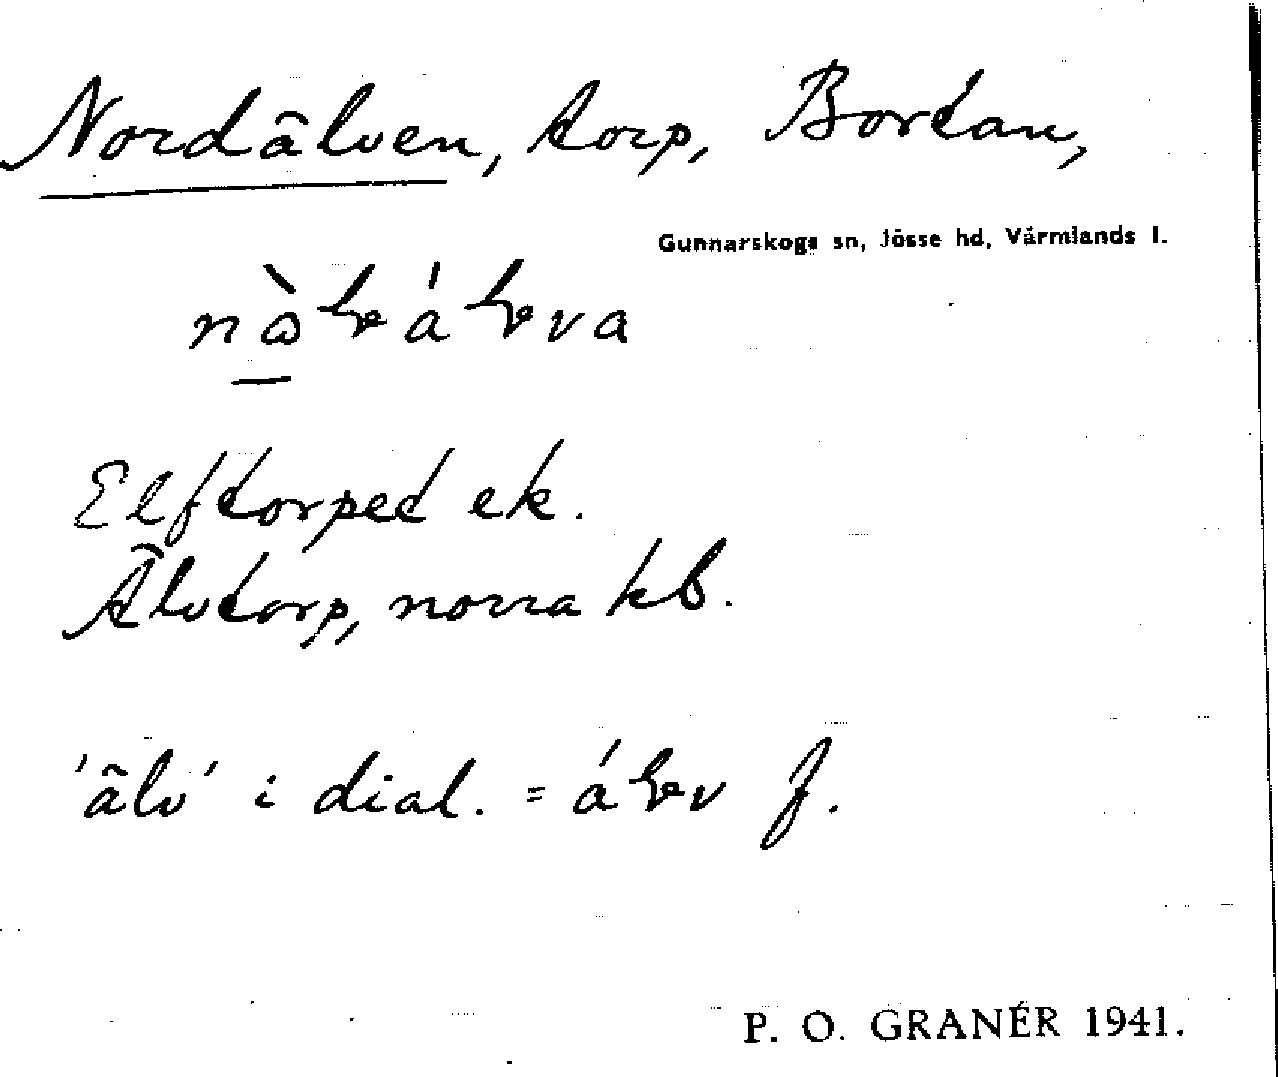 Nordälven, torp, Bortan,
Gunnarskogs sn, Jösse hd, Värmlands l.
Elftorpet ek.
Älvtorp, norra kb.
'älv' i dial. = f.
P. O. GRANÉR 1941.